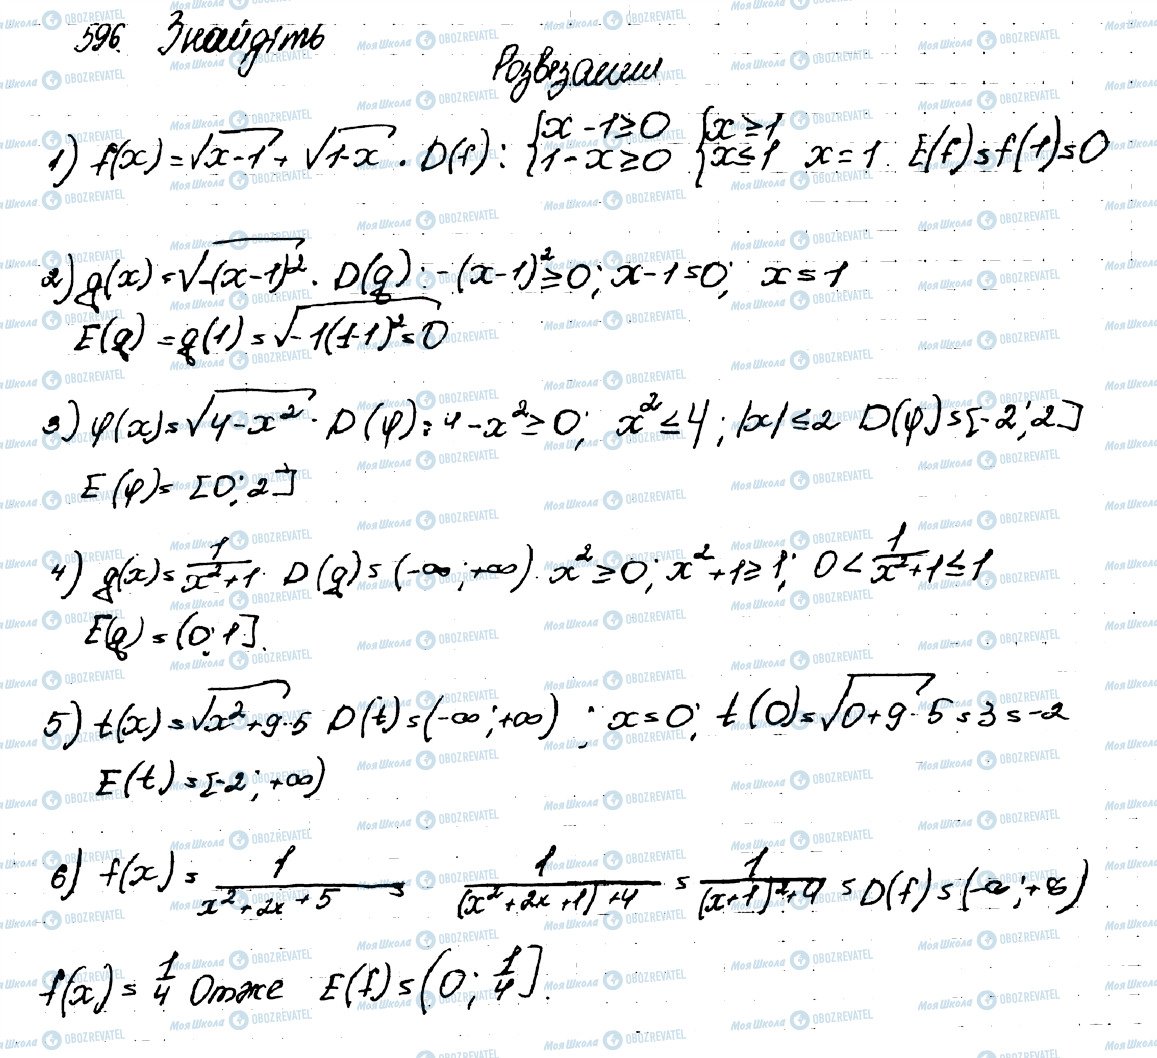 596. Знайдіть
Розвязання
1) f(x) = √x-1 + √1-x . D(f): { x - 1 ≥ 0 { x ≥ 1
1 - x ≥ 0 x ≤ 1 x = 1. E(f) = f(1) = 0
2) g(x) = √-(x-1)² . D(g): -(x-1)² ≥ 0; x-1=0; x = 1
E(g) = g(1) = √-1(1-1)² = 0
3) φ(x) = √4-x² . D(φ): 4-x² ≥ 0; x² ≤ 4; |x| ≤ 2 D(φ) = [-2; 2]
E(φ) = [0; 2]
4) g(x) = 1/(x²+1). D(g) = (-∞; +∞). x² ≥ 0; x²+1 ≥ 1; 0 < 1/(x²+1) ≤ 1
E(g) = (0; 1].
5) t(x) = √x²+9-5 D(t) = (-∞; +∞) ; x = 0; t(0) = √0+9-5 = 3 = -2
E(t) = [-2; +∞)
6) f(x) = 1/(x²+2x+5) = 1/((x²+2x+1)+4) = 1/((x+1)²+4) = D(f) = (-∞; +∞)
f(x) = 1/4 Отже E(f) = (0; 1/4].
Моя Школа OBOZREVATEL